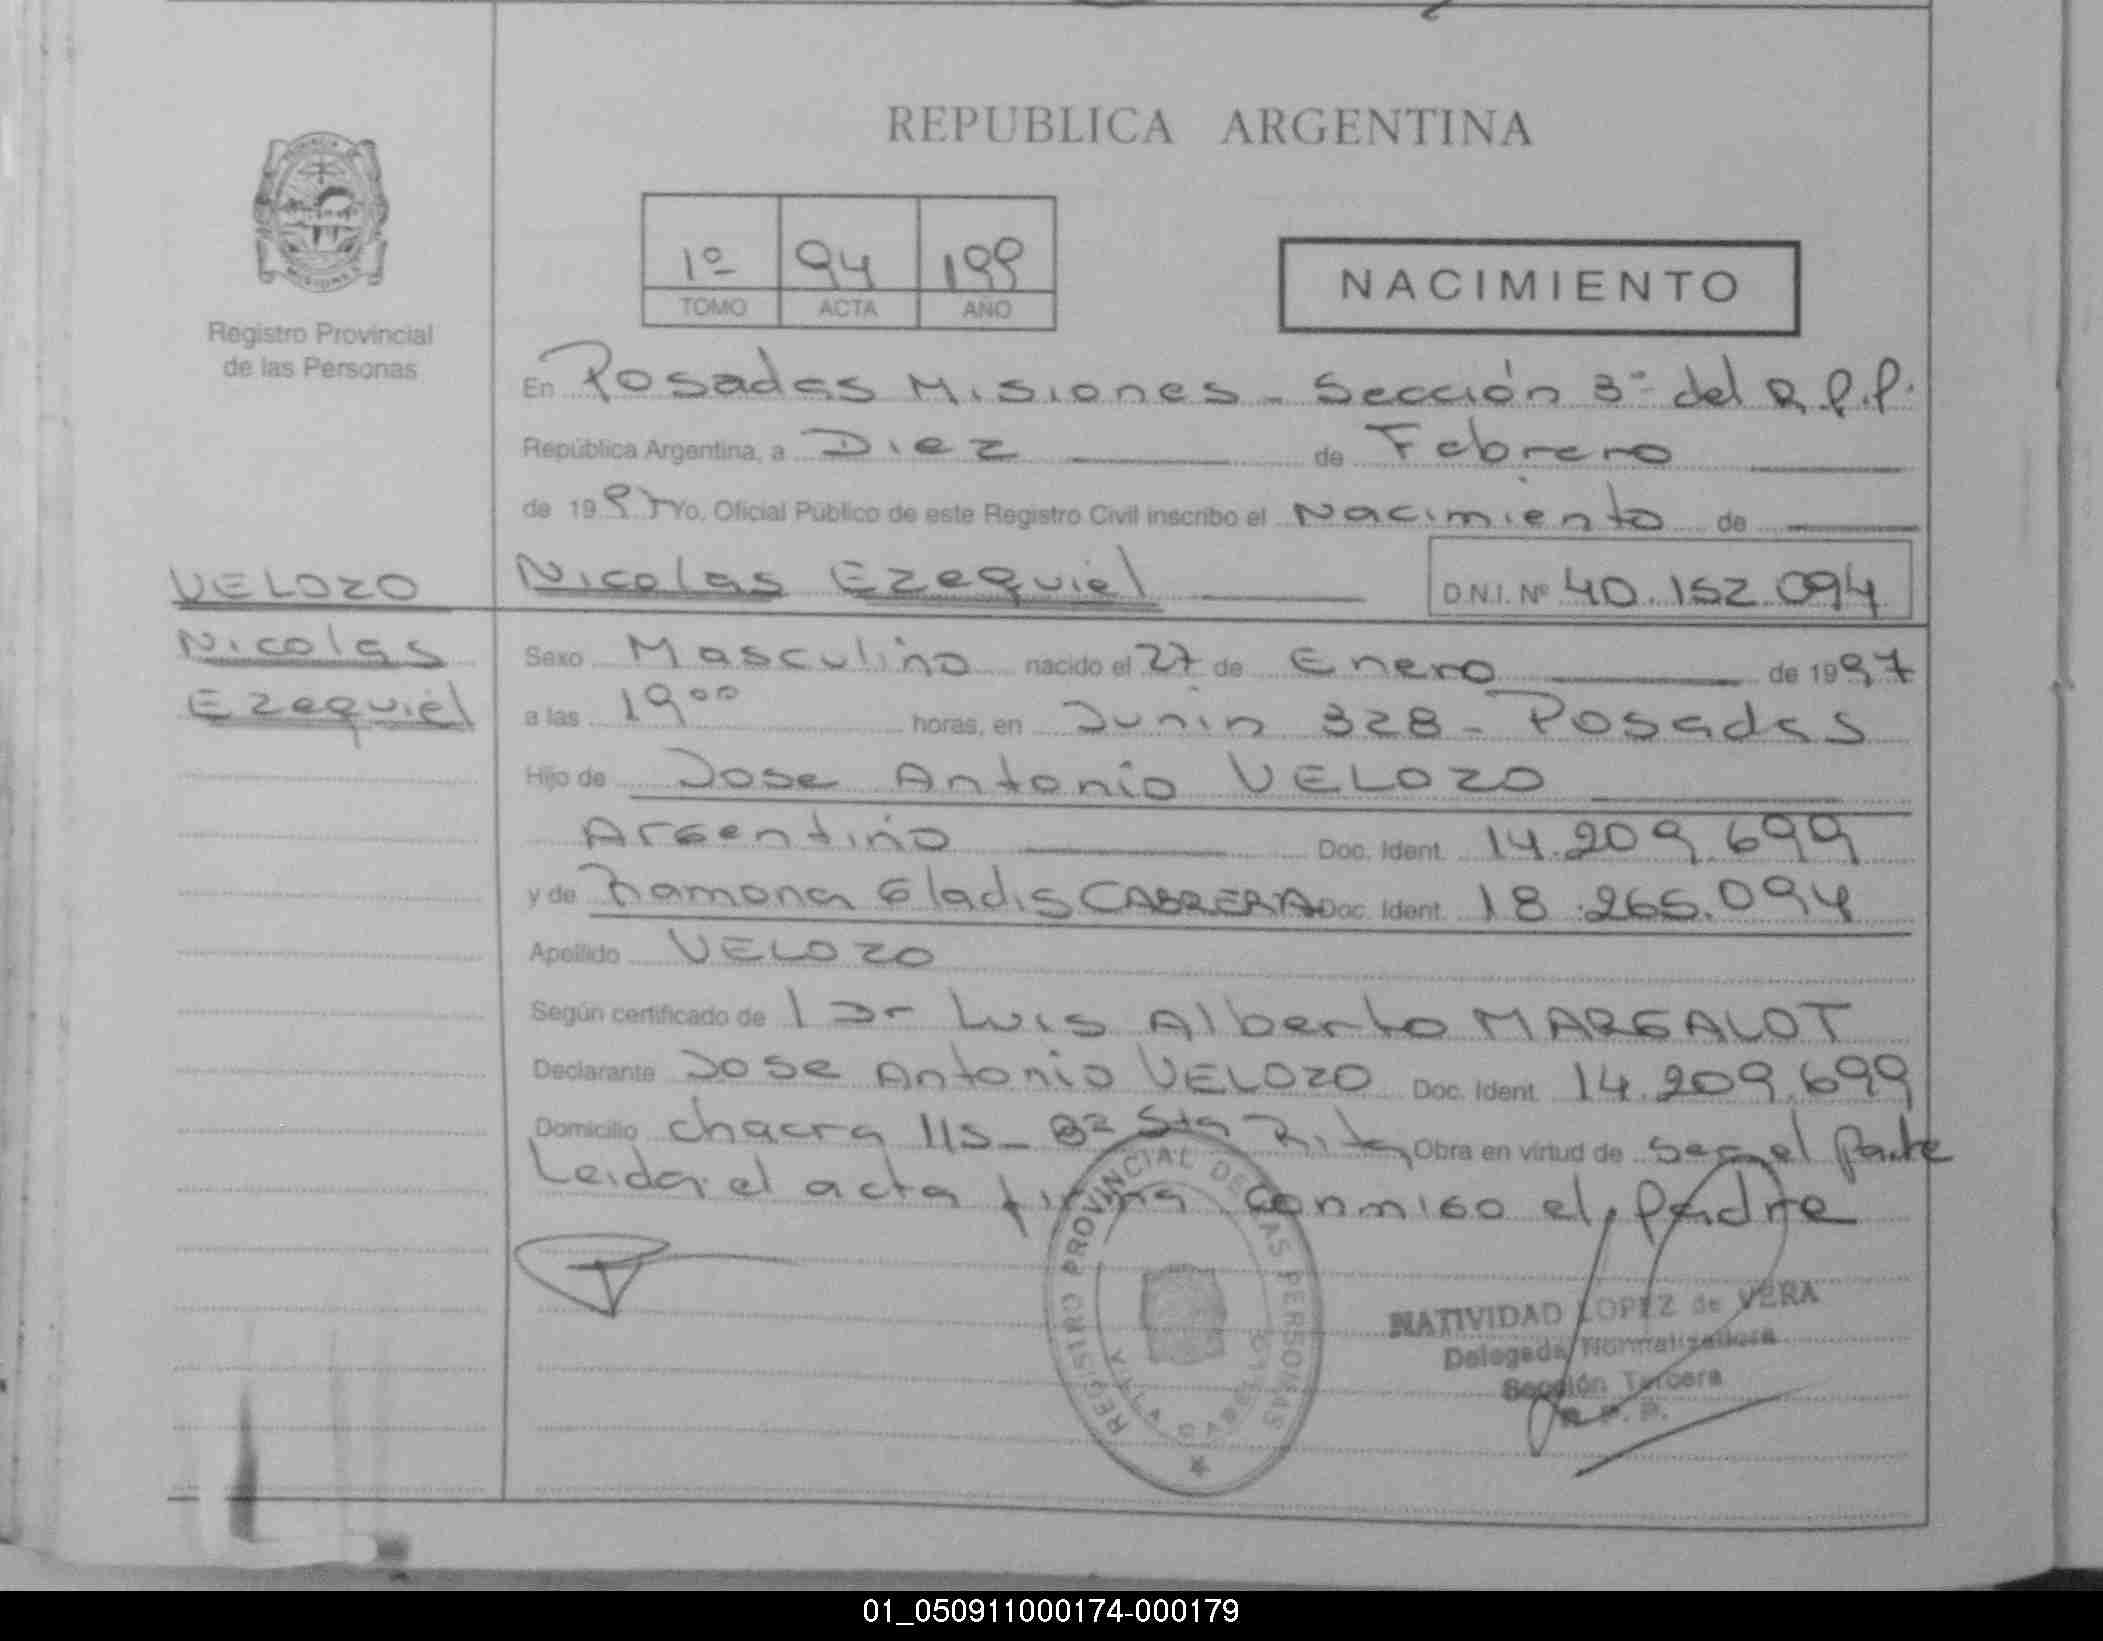 REPUBLICA ARGENTINA
1º 94 199
TOMO ACTA AÑO
NACIMIENTO
Registro Provincial
de las Personas
En Posadas Misiones - Sección 3ª del R.P.P.
República Argentina, a Diez de Febrero
de 1997 Yo, Oficial Público de este Registro Civil inscribo el Nacimiento de
VELOZO
Nicolas
Ezequiel
Nicolas Ezequiel D.N.I. Nº 40.152.094
Sexo Masculino nacido el 27 de Enero de 1997
a las 19⁰⁰ horas, en Junin 328 - Posadas
Hijo de Jose Antonio VELOZO
Argentino Doc. Ident. 14.209.699
y de Ramona Gladis CABRERA Doc. Ident. 18.265.094
Apellido VELOZO
Según certificado de l Dr Luis Alberto MARGALOT
Declarante Jose Antonio VELOZO Doc. Ident. 14.209.699
Domicilio chacra 115 - Bº Sta Rita Obra en virtud de ser el Padre
Leida el acta firma conmigo el Padre
REGISTRO PROVINCIAL DE LAS PERSONAS
NATIVIDAD LOPEZ de VERA
Delegada Normalizadora
Sección Tercera
R. P. P.
01_050911000174-000179